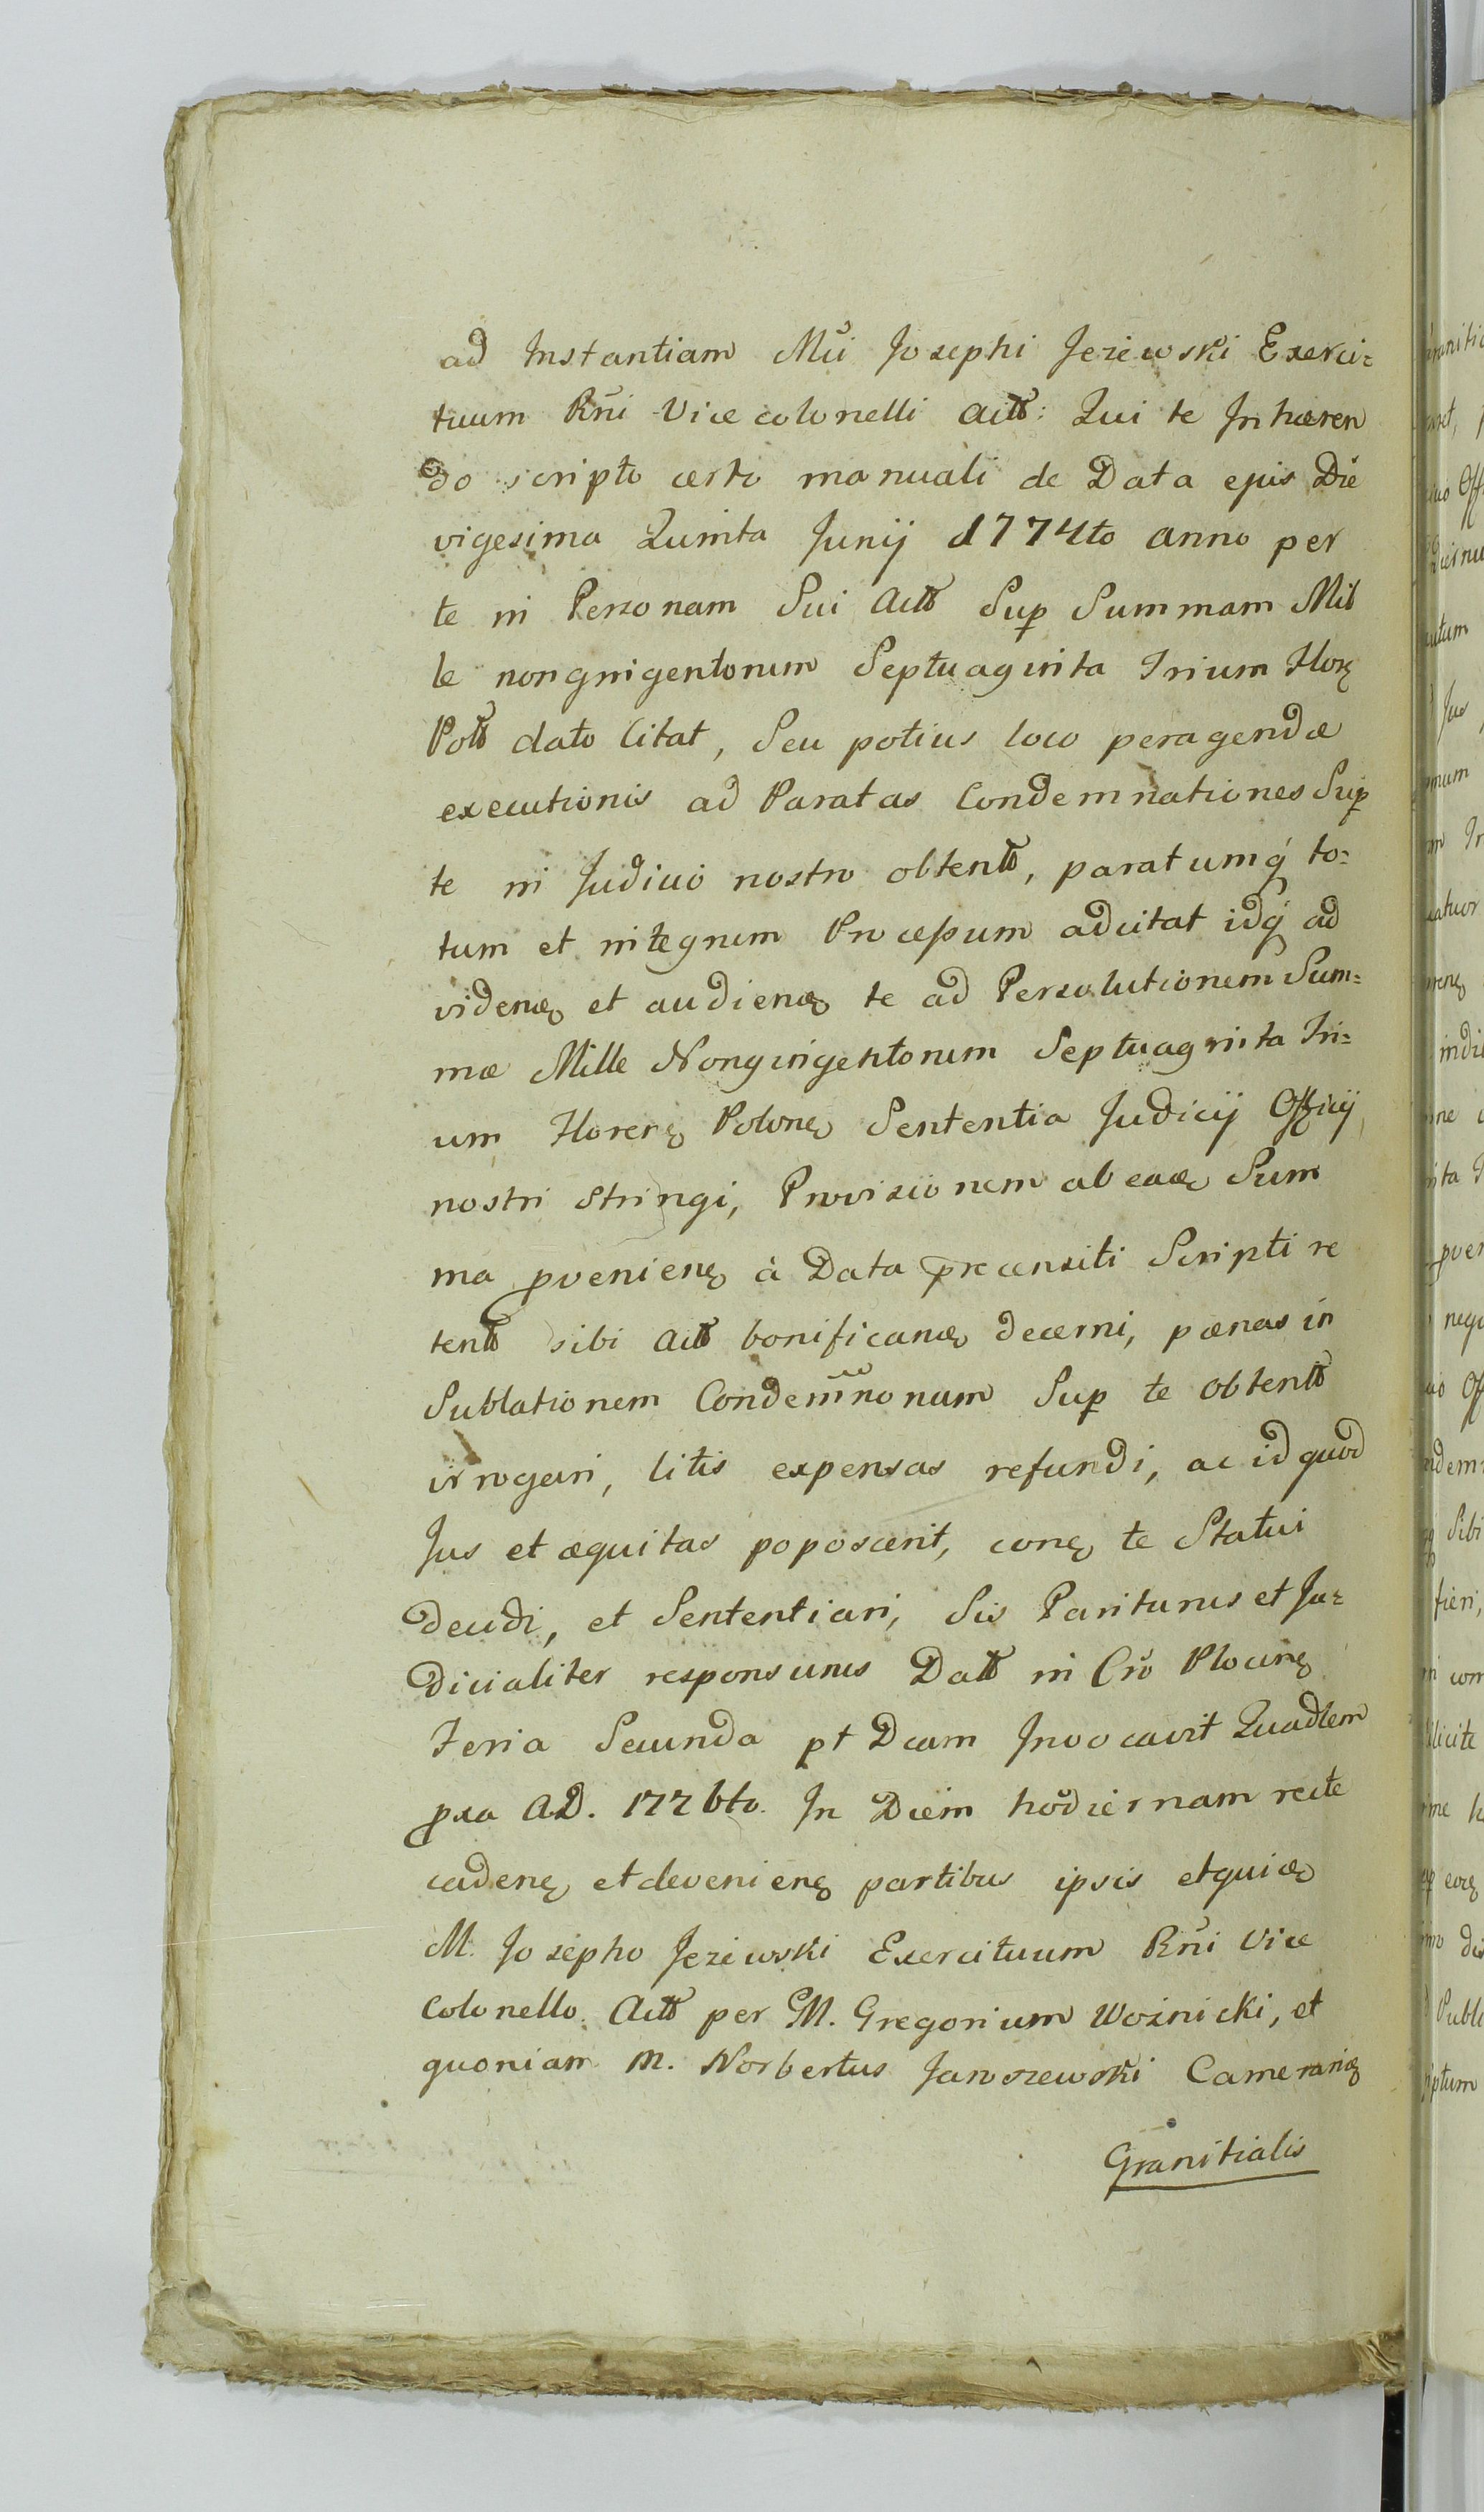 ad Instantiam Mci Josephi Jeziewski Exerci=
tuum Rñi Vice colonelli Actt: Qui te Inhæren
do scripto certo manuali de Data ejus Die
vigesima Quinta Junij 1774to anno per
te in Personam Sui Actt Sup Summam Mil
le nongnigentorum Septuaginta Trium Flor
Poltt dato Citat, Seu potius loco peragendæ
executionis ad Paratas Condemnationes Sup
te in Judicio nostro obtentt, paratumq to=
tum et integrum Processum adcitat idq ad
videne et audiene te ad Persolutionem Sum=
mæ Mille Nongingentorum Septuaginta Tri=
um Florene Polone Sententia Judicij Officij
nostri stringi, Provisionem ab eade Sum
ma pveniene à Data præcensiti Scripti re
tentt sibi Actt bonificane decerni, pænas in
Sublationem Condem̃nonum Sup te obtentt
irrogari, litis expensas refundi, ac id quod
Jus et æquitas poposcerit, cone te Statui
decidi, et Sententiari, Sis Pariturus et Ju=
dicialiter responsurus Datt in Cro Plocene
Feria Secunda pt Dcam Invocavit Quadlem
pxa A.D. 1776to. In Diem hodiernam recte
cadene et deveniene partibus ipsis etquide
M. Josepho Jeziewski Exercituum Rñi Vice
Colonello Actt per M. Gregorium Woźnicki, et
quoniam M. Norbertus Jaroszewski Camerarig
Granitialis